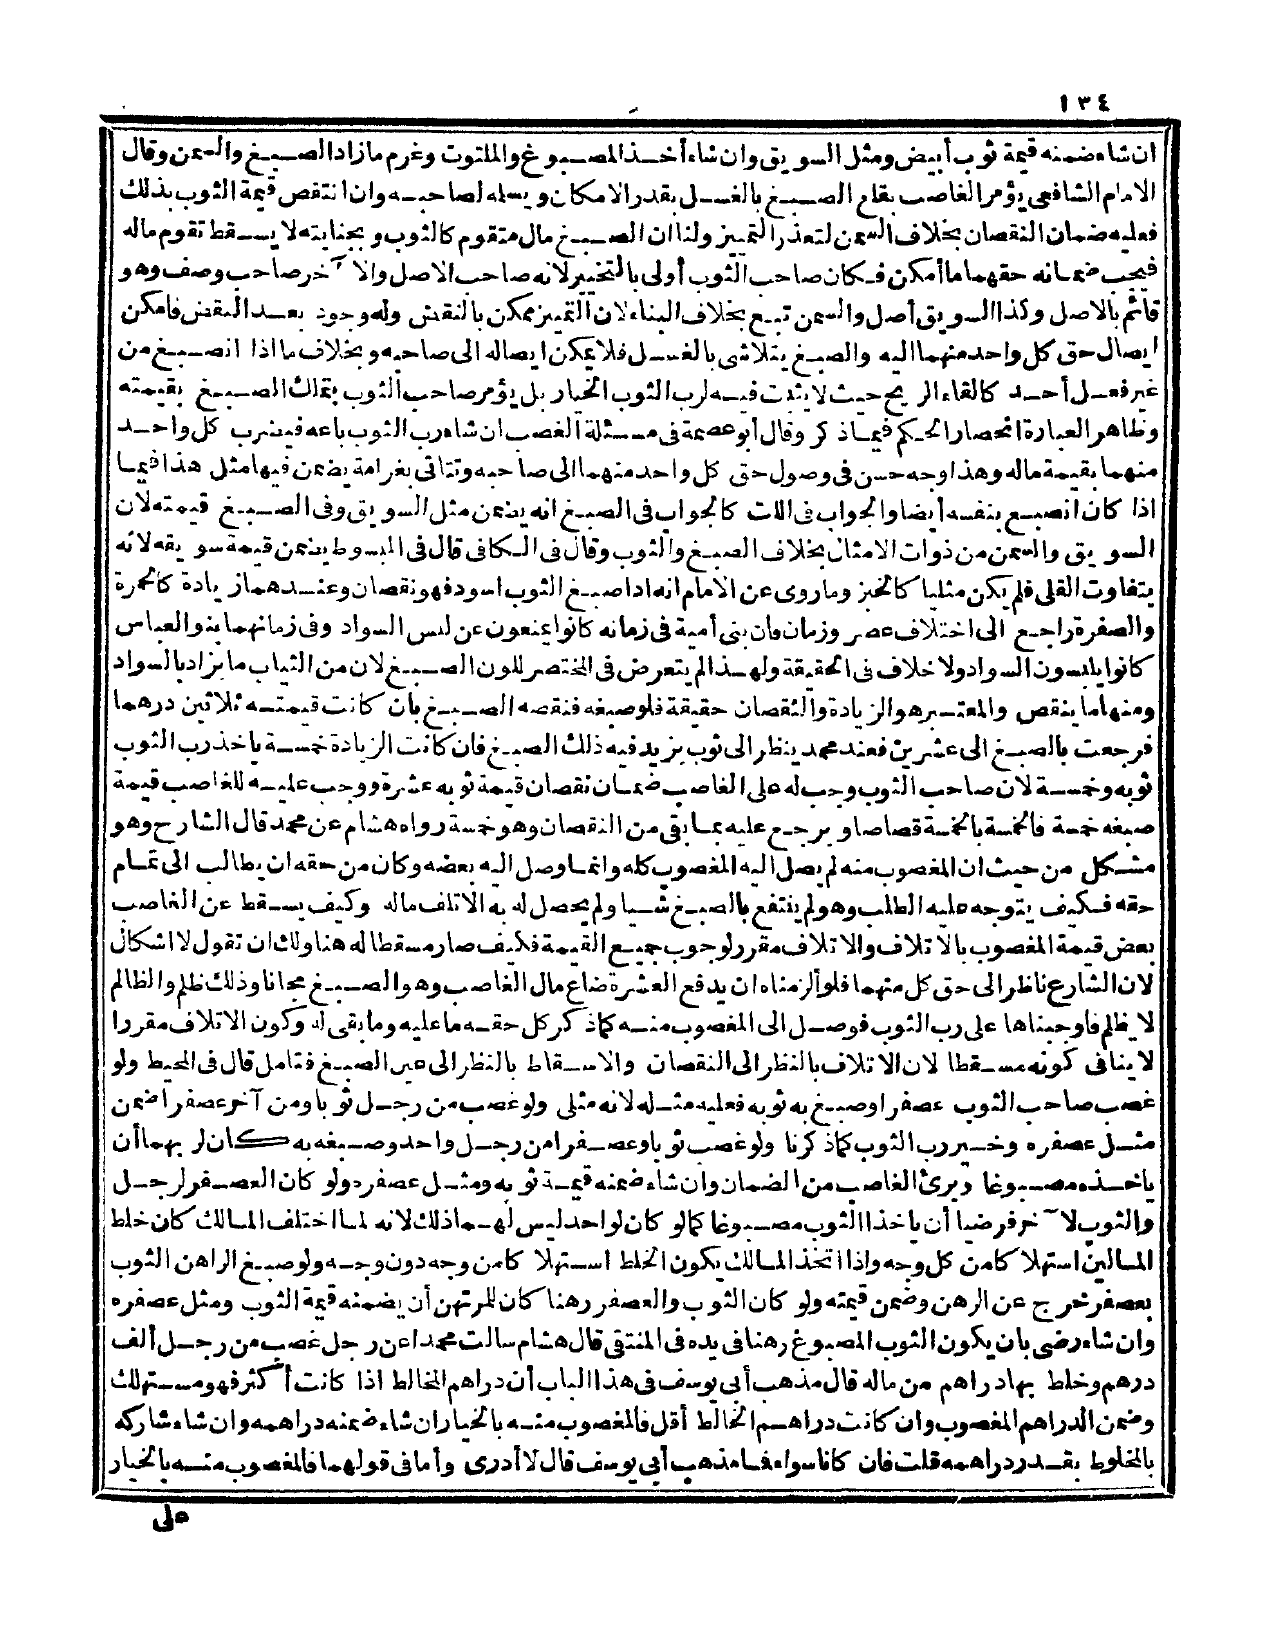 ١٣٤
ان شاء ضمنه قيمة ثوب أبيض ومثل السويق وان شاء أخذ المصبوغ والملتوت وغرم مازاد الصبغ والسمن وقال
الامام الشافعي يؤمر الغاصب بقلع الصبغ بالغسل بقدر الامكان ويسلمه لصاحبه وان انتقص قيمة الثوب بذلك
فعليه ضمان النقصان بخلاف السمن لتعذر التمييز ولنا ان الصبغ مال متقوم كالثوب وبجنايته لا يسقط تقوم ماله
فيجب ضمانه حقهما ما أمكن فكان صاحب الثوب أولى بالتخيير لانه صاحب الاصل والآخر صاحب وصف وهو
قائم بالاصل وكذا السويق أصل والسمن تبع بخلاف البناء لان التمييز ممكن بالنقض وله وجود بعد النقض فامكن
ايصال حق كل واحد منهما اليه والصبغ يتلاشى بالغسل فلا يمكن ايصاله الى صاحبه وبخلاف ما اذا انصبغ من
غير فعل أحد كالقاء الريح حيث لا يثبت فيه لرب الثوب الخيار بل يؤمر صاحب الثوب بتملك الصبغ بقيمته
وظاهر العبارة انحصار الحكم فيما ذكر وقال أبو عصمة في مسئلة الغصب ان شاء رب الثوب باعه فيضرب كل واحد
منهما بقيمة ماله وهذا وجه حسن في وصول حق كل واحد منهما الى صاحبه وتتاتى بغرامة يضمن فيها مثل هذا فيما
اذا كان انصبغ بنفسه أيضا والجواب في اللت كالجواب في الصبغ انه يضمن مثل السويق وفي الصبغ قيمته لان
السويق والسمن من ذوات الامثال بخلاف الصبغ والثوب وقال في الكافي قال في المبسوط يضمن قيمة سويقه لانه
يتفاوت القلى فلم يكن مثليا كالخبز وما روى عن الامام انه اذا صبغ الثوب اسود فهو نقصان وعندهما زيادة كالحمرة
والصفرة راجع الى اختلاف عصر وزمان فان بنى أمية في زمانه كانوا يمنعون عن لبس السواد وفى زمانهما بنو العباس
كانوا يلبسون السواد ولا خلاف في الحقيقة ولهذا لم يتعرض في المختصر للون الصبغ لان من الثياب ما يزاد بالسواد
ومنها ما ينقص والمعتبر هو الزيادة والنقصان حقيقة فلو صبغه فنقصه الصبغ بأن كانت قيمته ثلاثين درهما
فرجعت بالصبغ الى عشرين فعند محمد ينظر الى ثوب يزيد فيه ذلك الصبغ فان كانت الزيادة خمسة ياخذ رب الثوب
ثوبه وخمسة لان صاحب الثوب وجب له على الغاصب ضمان نقصان قيمة ثوبه عشرة ووجب عليه للغاصب قيمة
صبغه خمسة فالخمسة بالخمسة قصاصا ويرجع عليه بما بقى من النقصان وهو خمسة رواه هشام عن محمد قال الشارح وهو
مشكل من حيث ان المغصوب منه لم يصل اليه المغصوب كله وانما وصل اليه بعضه وكان من حقه ان يطالب الى تمام
حقه فكيف يتوجه عليه الطلب وهو لم ينتفع بالصبغ شيا ولم يحصل له به الاتلاف ماله وكيف يسقط عن الغاصب
بعض قيمة المغصوب بالاتلاف والاتلاف مقرر لوجوب جميع القيمة فكيف صار مسقطا له هنا ولك ان تقول لا اشكال
لان الشارع ناظر الى حق كل منهما فلو ألزمناه ان يدفع العشرة ضاع مال الغاصب وهو الصبغ مجانا وذلك ظلم والظالم
لا يظلم فاوجبناها على رب الثوب فوصل الى المغصوب منه كما ذكر كل حقه ما عليه وما بقى له وكون الاتلاف مقررا
لا ينافى كونه مسقطا لان الاتلاف بالنظر الى النقصان والاسقاط بالنظر الى عين الصبغ فتامل قال في المحيط ولو
غصب صاحب الثوب عصفرا وصبغ به ثوبه فعليه مثله لانه مثلى ولو غصب من رجل ثوبا ومن آخر عصفرا ضمن
مثل عصفره وخير رب الثوب كما ذكرنا ولو غصب ثوبا وعصفرا من رجل واحد وصبغه به كان لربهما أن
ياخذه مصبوغا ويبرئ الغاصب من الضمان وان شاء ضمنه قيمة ثوبه ومثل عصفره ولو كان العصفر لرجل
والثوب لآخر فرضيا أن ياخذا الثوب مصبوغا كما لو كان لواحد ليس لهما ذلك لانه لما اختلف المالك كان خلط
المالين استهلاكا من كل وجه واذا اتحد المالك يكون الخلط استهلاكا من وجه دون وجه ولو صبغ الراهن الثوب
بعصفر خرج عن الرهن وضمن قيمته ولو كان الثوب والعصفر رهنا كان للمرتهن أن يضمنه قيمة الثوب ومثل عصفره
وان شاء رضى بان يكون الثوب المصبوغ رهنا في يده في المنتقى قال هشام سالت محمدا عن رجل غصب من رجل ألف
درهم وخلط بها دراهم من ماله قال مذهب أبي يوسف في هذا الباب أن دراهم الخالط اذا كانت أكثر فهو مستهلك
وضمن الدراهم المغصوب وان كانت دراهم الخالط أقل فالمغصوب منه بالخيار ان شاء ضمنه دراهمه وان شاء شاركه
بالمخلوط بقدر دراهمه قلت فان كانا سواء فما مذهب أبي يوسف قال لا أدرى وأما في قولهما فالمغصوب منه بالخيار
على